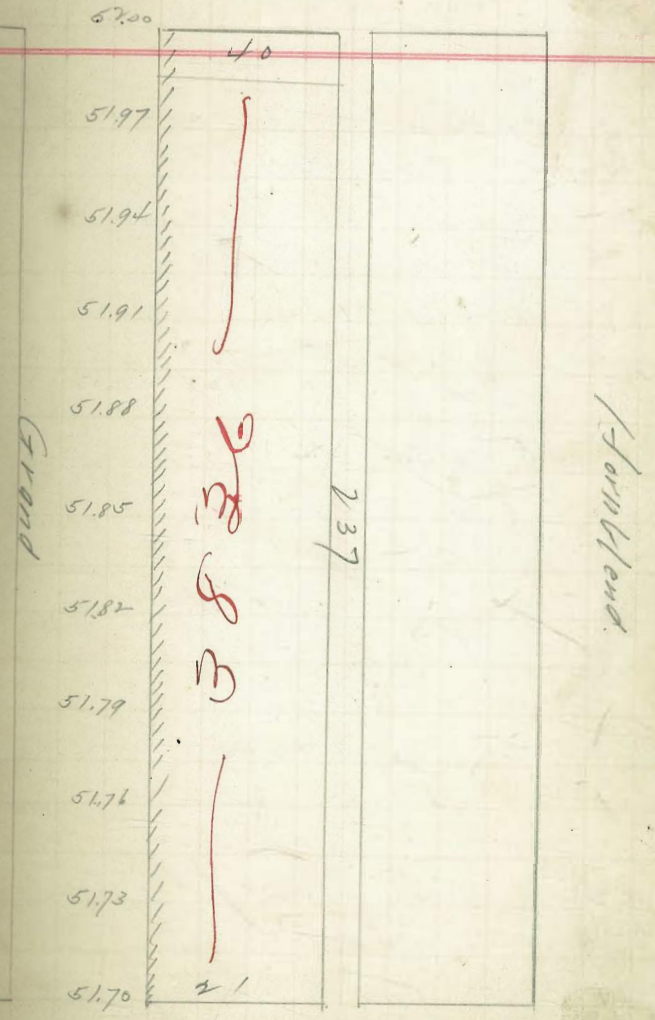 52.00
40
51.97
51.94
51.91
51.88
51.85
51.82
51.79
51.76
51.73
51.70
21
3826
237
Grand
Hornblend